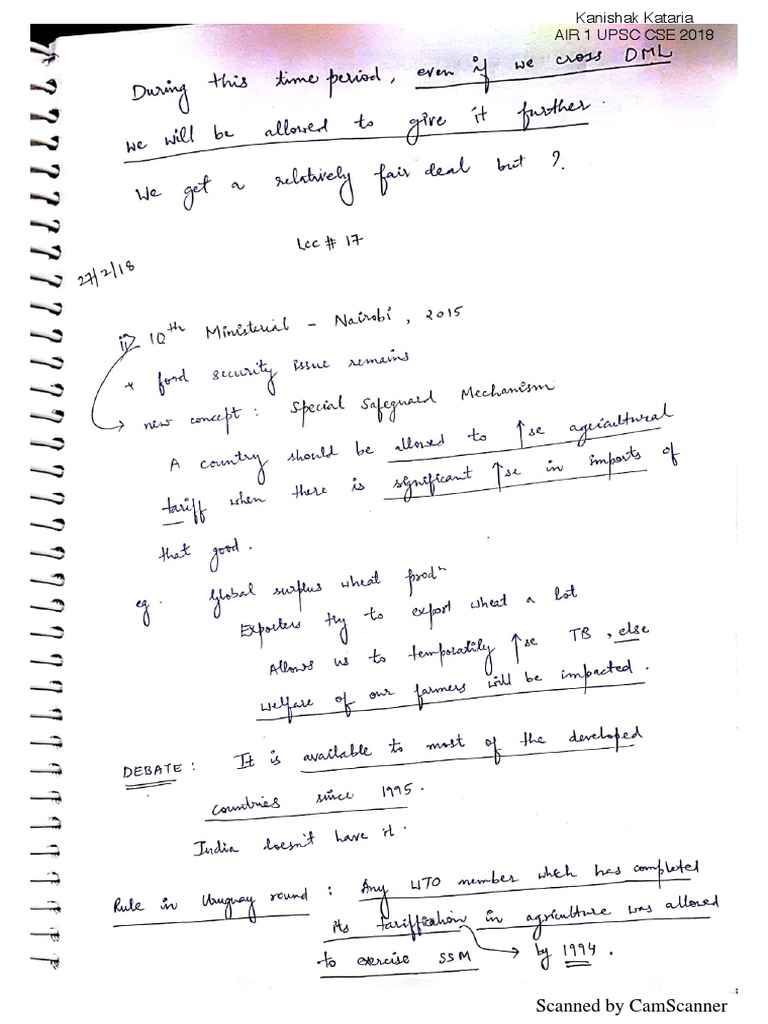 Kanishak Kataria
AIR 1 UPSC CSE 2018
During this time period, even if we cross DML
we will be allowed to give it further.
We get a relatively fair deal but ?
Lec # 17
27/2/18
ii) 10th Ministerial - Nairobi, 2015
* food security issue remains
→ new concept : Special Safeguard Mechanism
A country should be allowed to ↑se agricultural
tariff when there is significant ↑se in imports of
that good.
eg. Global surplus wheat prodn
Exporters try to export wheat a lot
Allows us to temporatily ↑se TB, else
welfare of our farmers will be impacted.
DEBATE : It is available to most of the developed
countries since 1995.
India doesn't have it.
Rule in Uruguay round : Any WTO member which has completed
its tariffication in agriculture was allowed
to exercise SSM → by 1994.
Scanned by CamScanner